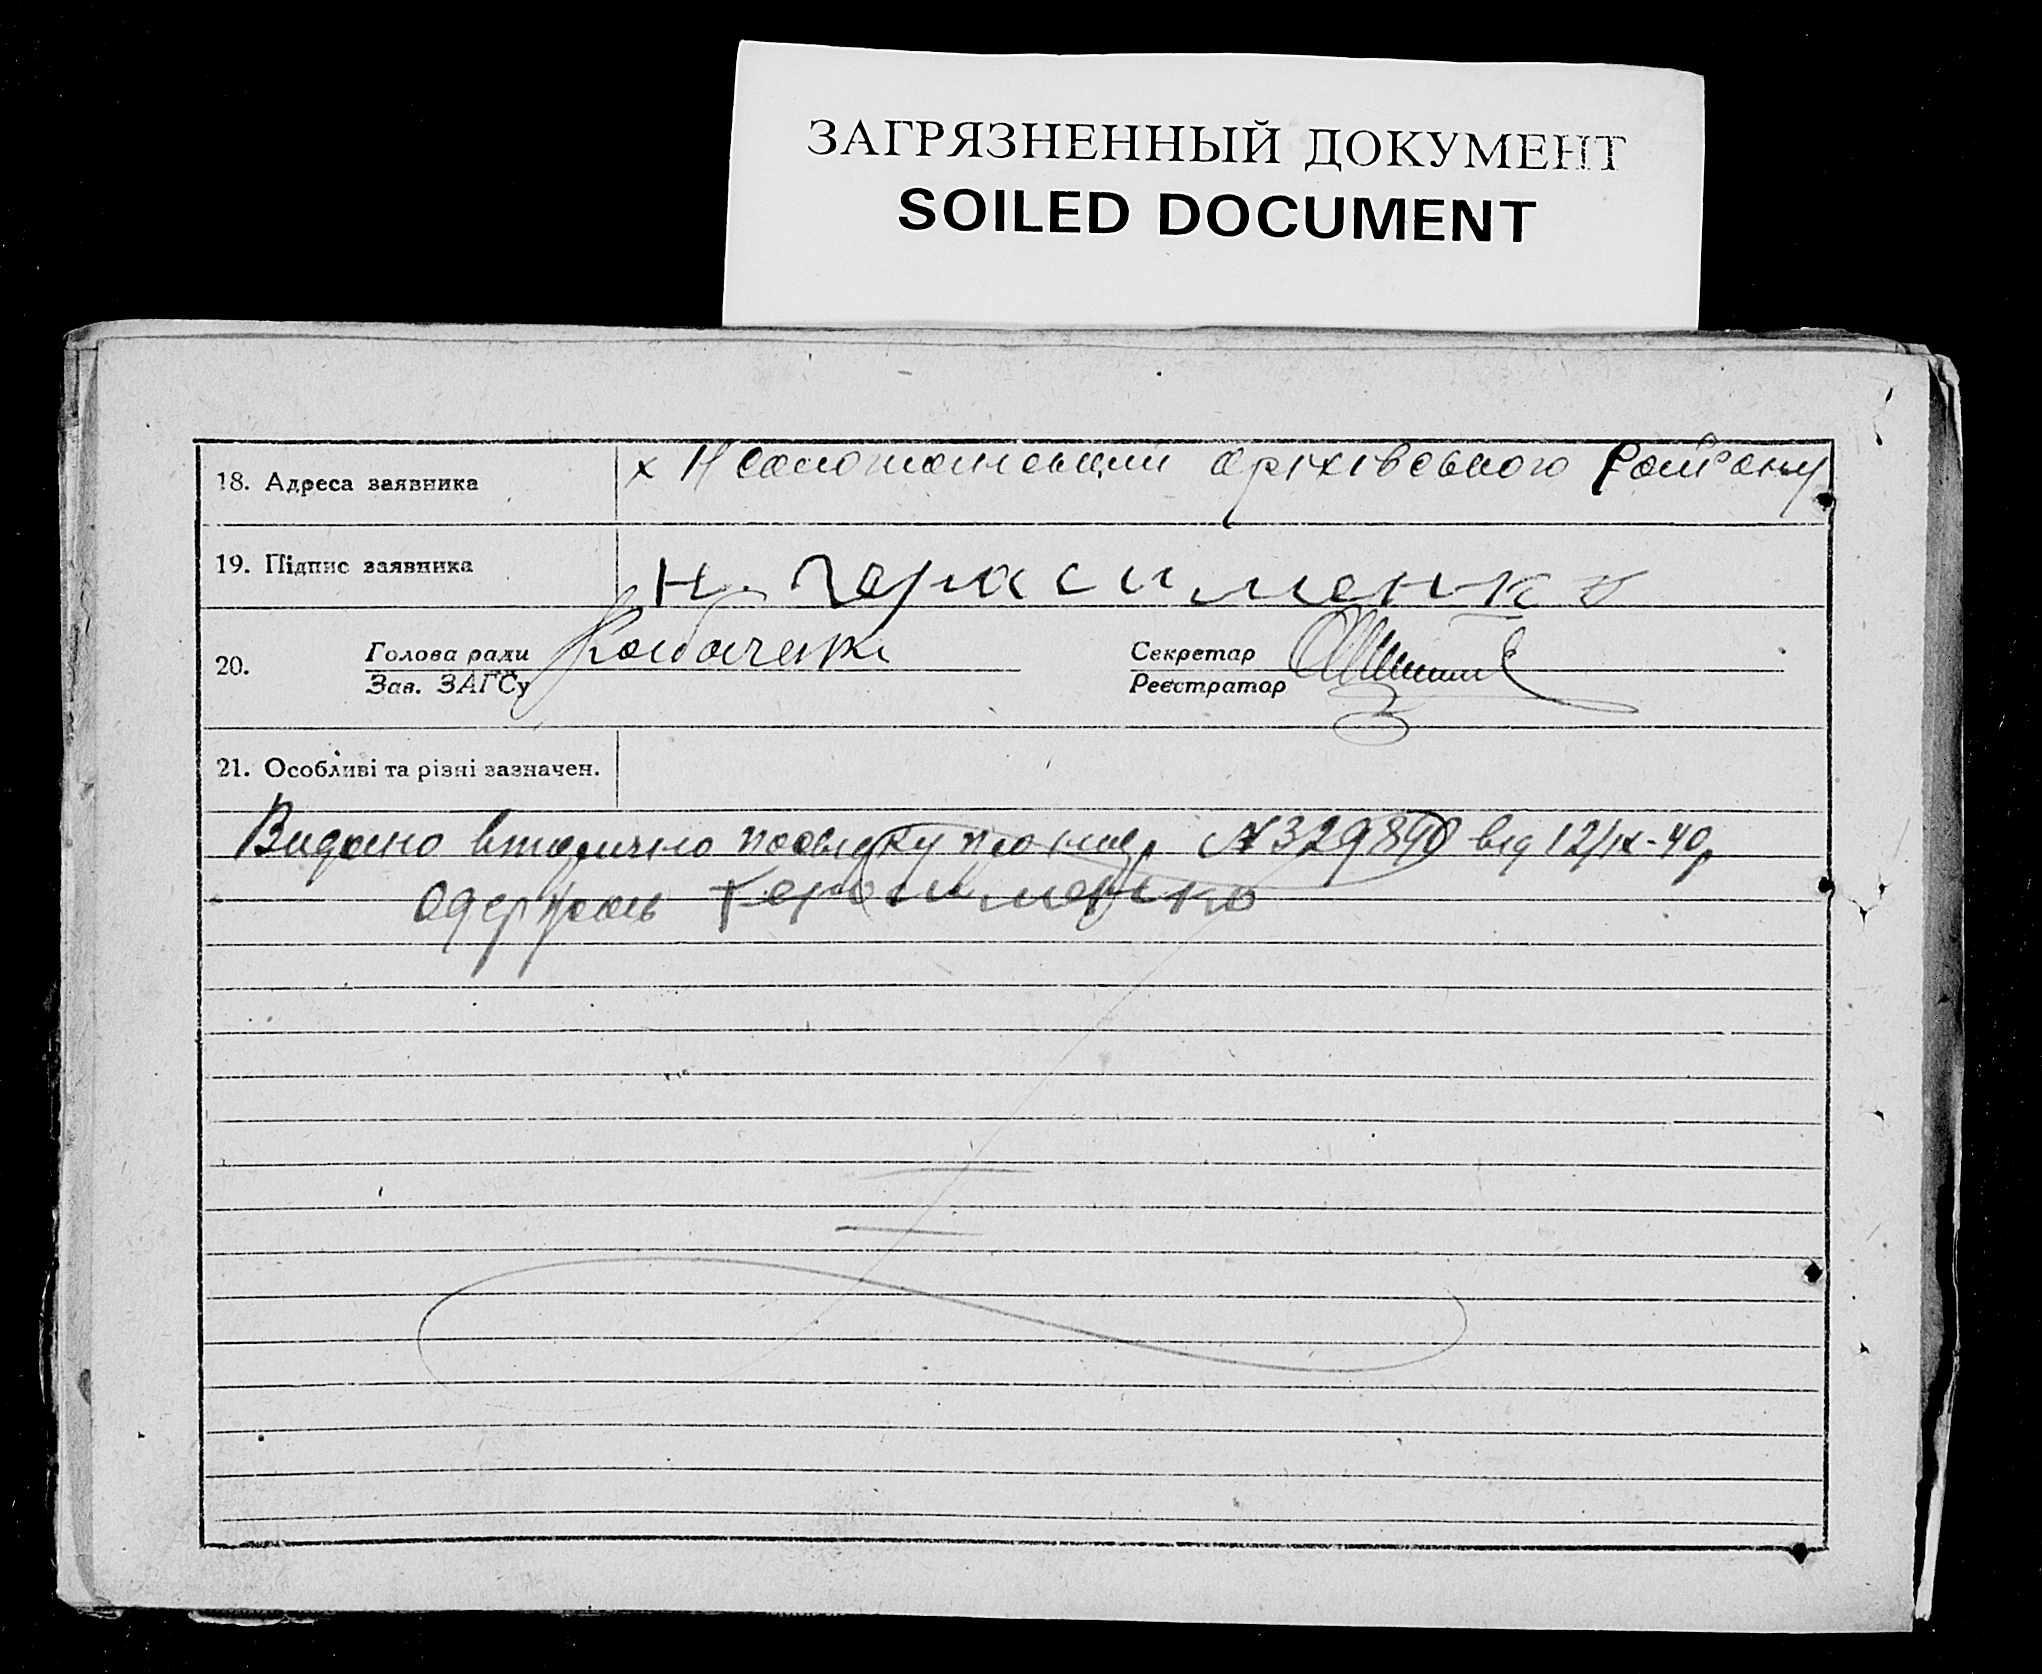 ЗАГРЯЗНЕННЫЙ ДОКУМЕНТ
SOILED DOCUMENT
18. Адреса заявника х оріхівського району
19. Підпис заявника Н. Герасименко
20. Голова ради Секретар
Зав. ЗАГСу Реєстратор
21. Особливі та різні зазначен.
Видано вторично посвідку про від 12/ІХ-40р
одержав Герасименко